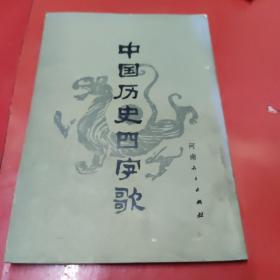 中国历史四字歌
河南人民出版社